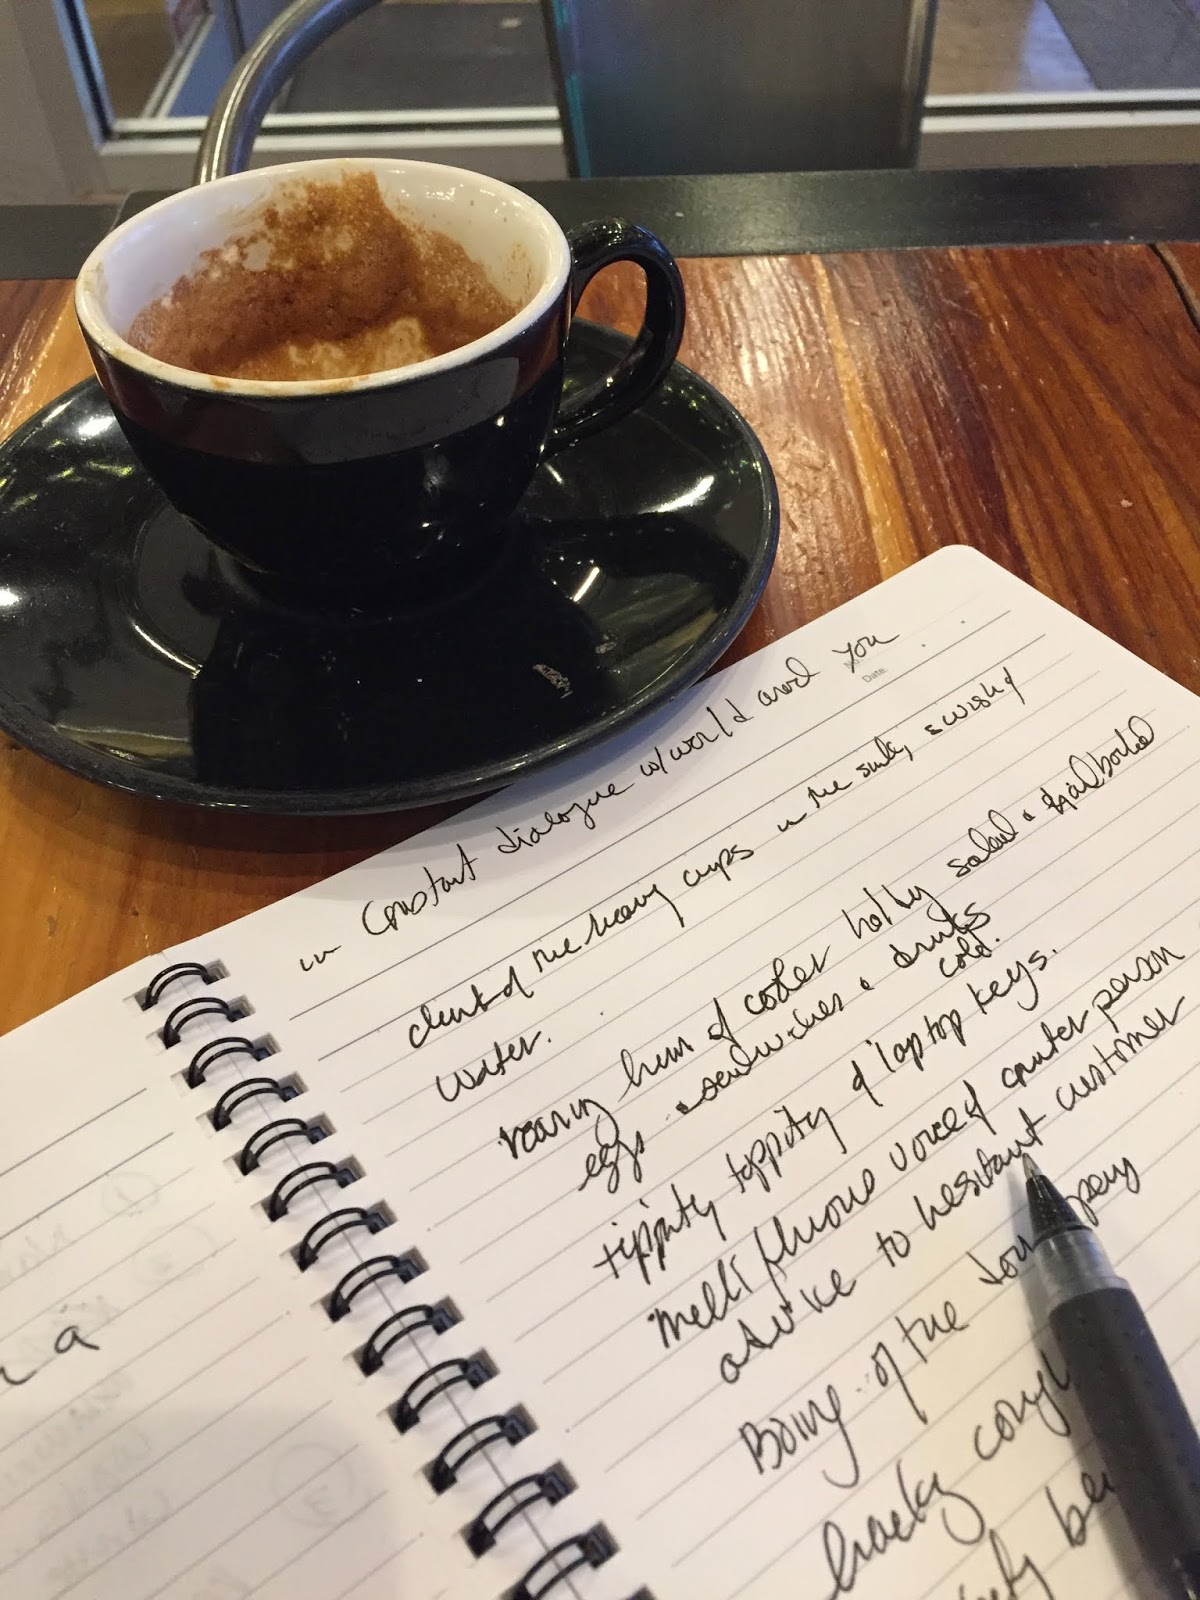 in constant dialogue w/world and you
Date
clink of the heavy cups in the sink, swish of
water.
roaring hum of cooler holding salad & hardboiled
eggs & sandwiches & drinks
cold.
tippity tippity of laptop keys.
mellifluous voice of counter person
advice to hesitant customer
Boing of the door
hacky cough